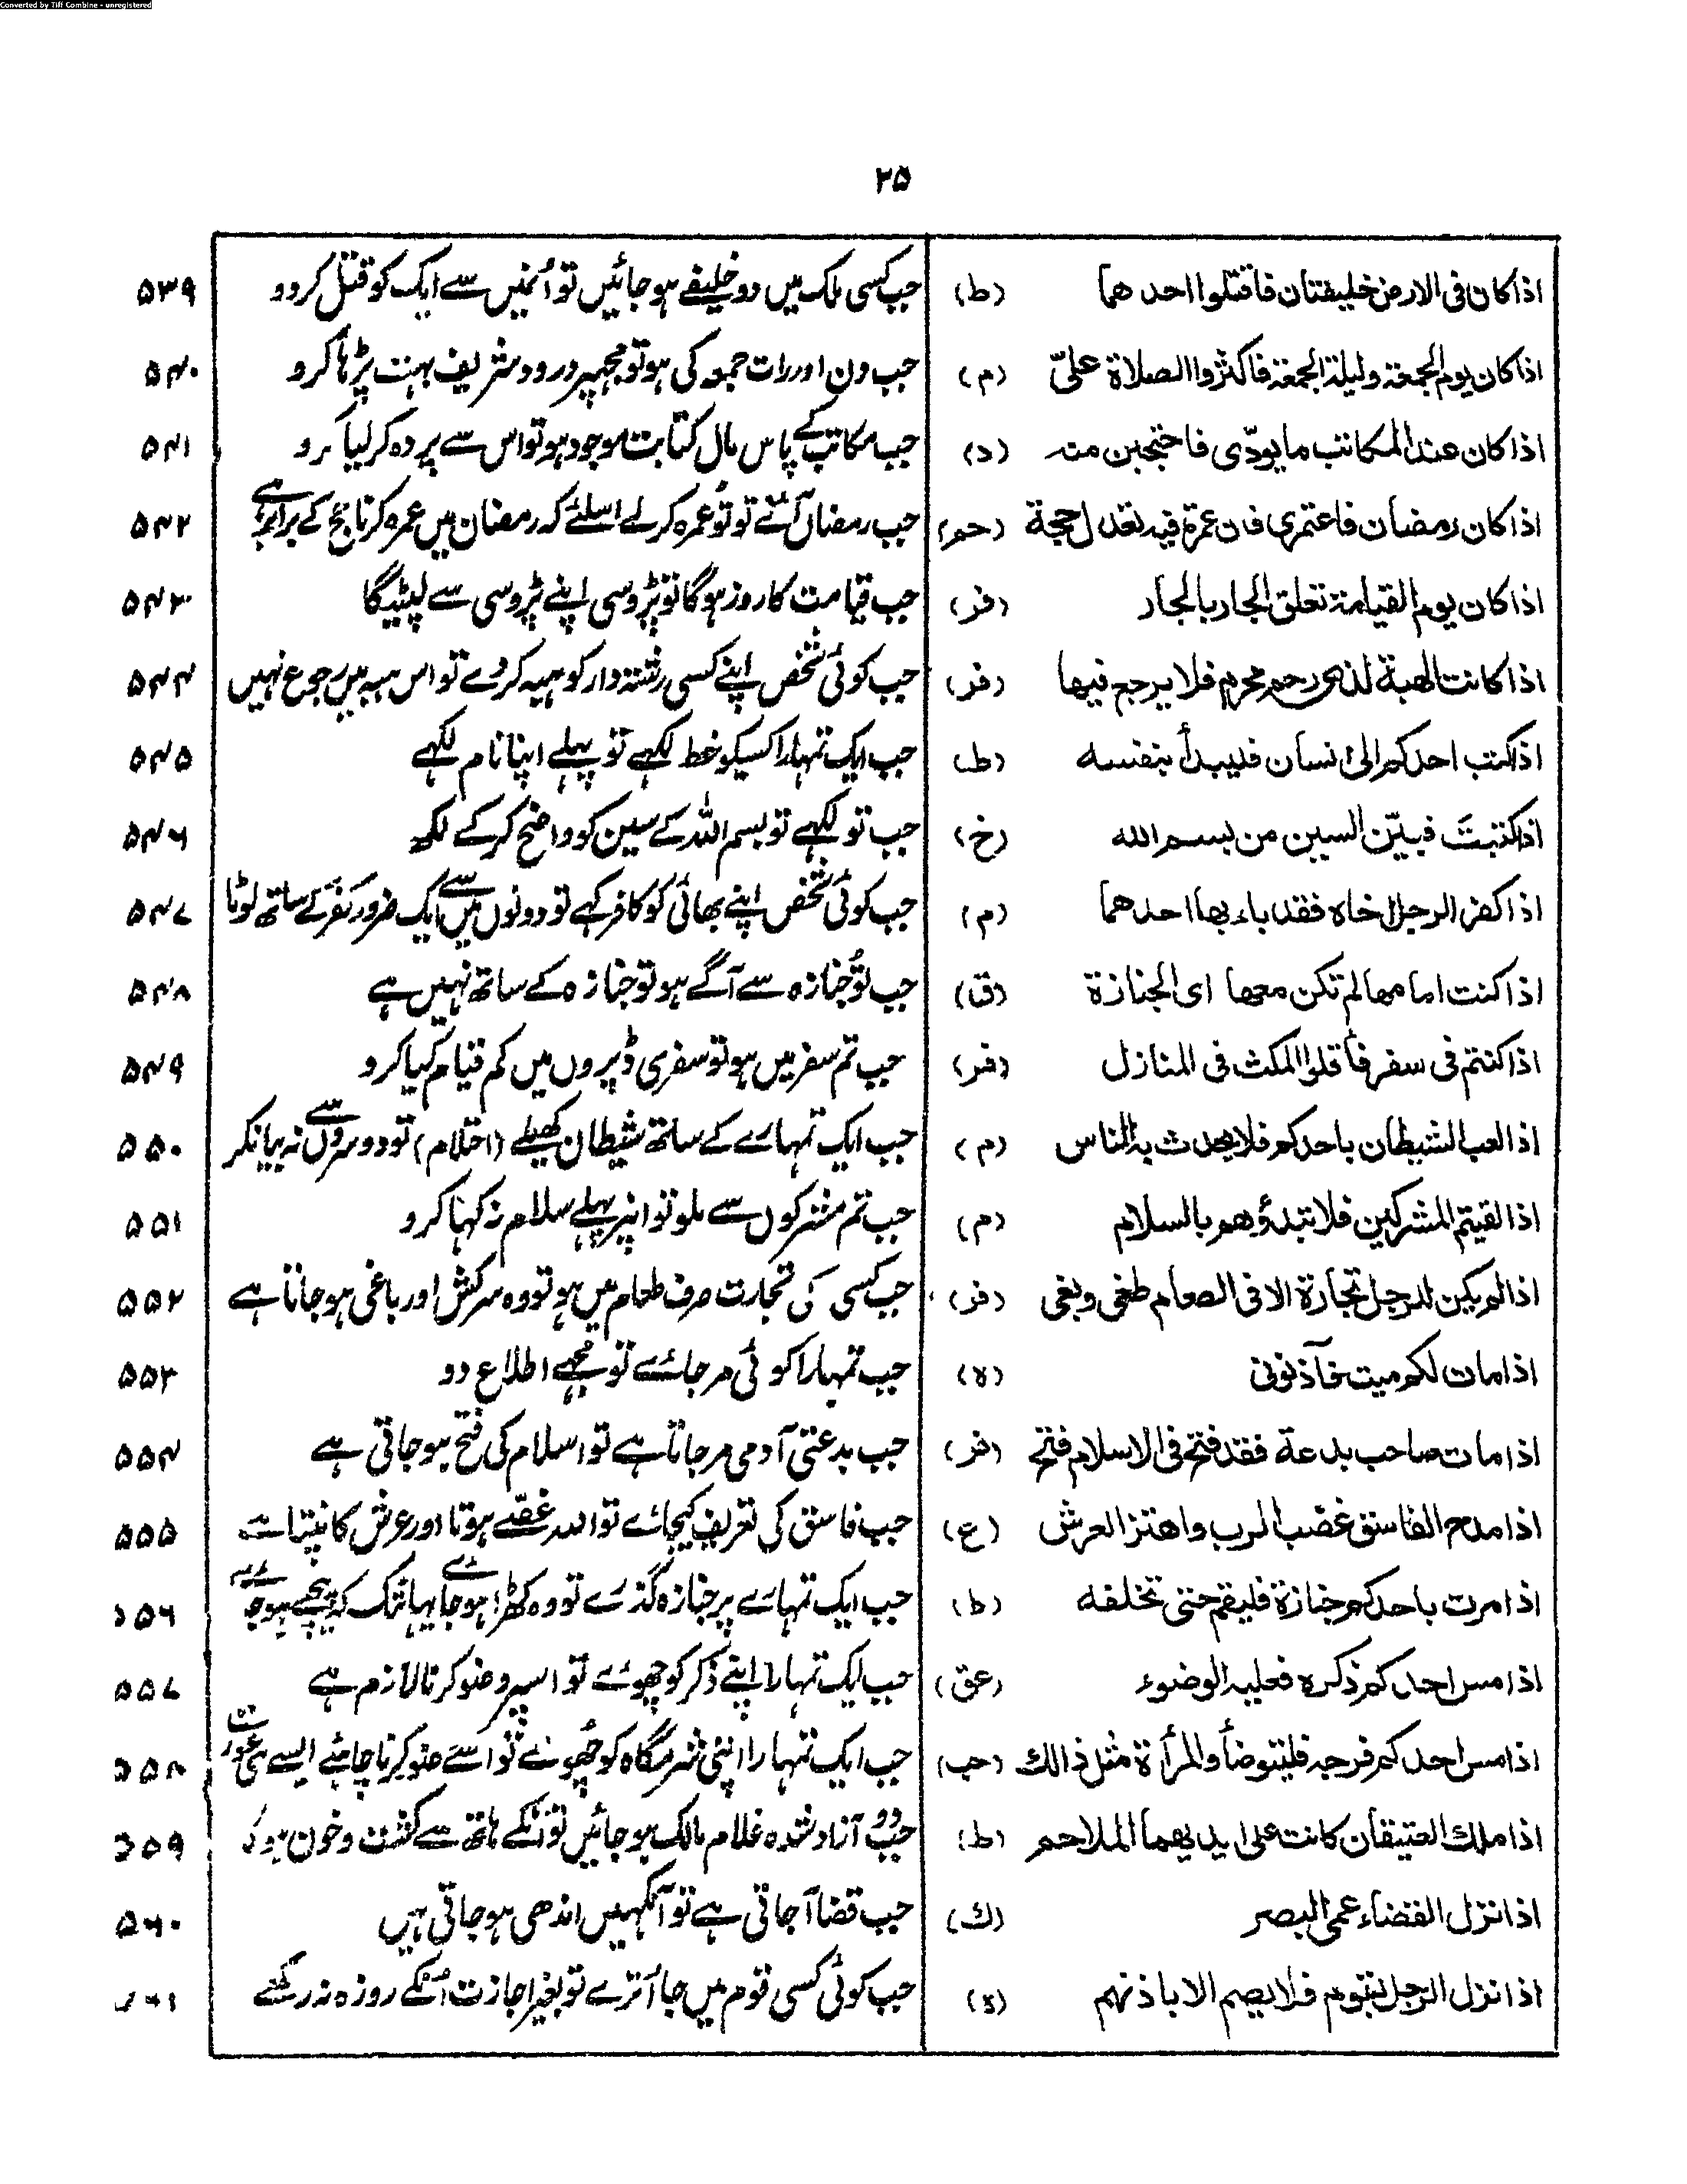 Converted by Tiff Combine - unregistered
۲۵
اذا كان فى الارض خليفتان فاقتلوا احدهما (ط) جب کسی ملک میں دو خلیفے ہو جائیں تو اُنمیں سے ایک کو قتل کردو ۵۳۹
اذا كان يوم الجمعة وليلة الجمعة فاكثروا الصلاة علىّ (م) جب دن اور رات جمعہ کی ہو تو مجہپر درود شریف بہت پڑہا کرو ۵۴۰
اذا كان عند المكاتب ما يودّى فاحتجبن منه (د) جب مکاتب کے پاس مال کتابت موجود ہو تو اس سے پردہ کر لیا کرو ۵۴۱
اذا كان رمضان فاعتمرى فان عمرة فيه تعدل حجة (حم) جب رمضان آئے تو تُو عمرہ کرلے اسلئے کہ رمضان میں عمرہ کرنا حج کے برابر ہے ۵۴۲
اذا كان يوم القيامة تعلق الجار بالجار (فر) جب قیامت کا روز ہوگا تو پڑوسی اپنے پڑوسی سے لپٹیگا ۵۴۳
اذا كانت الهبة لذى رحم محرم فلا يرجع فيها (فر) جب کوئی شخص اپنے کسی رشتہ دار کو ہبہ کردے تو اس ہبہ میں رجوع نہیں ۵۴۴
اذا كتب احدكم الى انسان فليبدأ بنفسه (ط) جب ایک تمہارا کسیکو خط لکہے تو پہلے اپنا نام لکہے ۵۴۵
اذا كتبتَ فبيّن السين من بسم الله (خ) جب تو لکہے تو بسم اللہ کے سین کو واضح کرکے لکہ ۵۴۶
اذا كفر الرجل اخاه فقد باء بها احدهما (م) جب کوئی شخص اپنے بھائی کو کافر کہے تو دونوں میں سے ایک ضرور کفر کے ساتھ لوٹا ۵۴۷
اذا كنت امامها لم تكن معها اى الجنازة (ق) جب تُو جنازہ سے آگے ہو تو جنازہ کے ساتھ نہیں ہے ۵۴۸
اذا كنتم فى سفر فأقلوا المكث فى المنازل (فر) جب تم سفر میں ہو تو سفری ڈیروں میں کم قیام کیا کرو ۵۴۹
اذا لعب الشيطان باحدكم فلا يحدث به الناس (م) جب ایک تمہارے کے ساتھ شیطان کھیلے (احتلام) تو دوسروں سے نہ بیانکر ۵۵۰
اذا لقيتم المشركين فلا تبدؤهم بالسلام (م) جب تم مشرکوں سے ملو تو انپر پہلے سلام نہ کہا کرو ۵۵۱
اذا لم يكن للرجل تجارة الا فى الطعام طغى وبغى (فر) جب کسی کی تجارت صرف طعام میں ہو تو وہ سرکش اور باغی ہو جاتا ہے ۵۵۲
اذا مات لكم ميت فآذنونى (ه) جب تمہارا کوئی مر جائے تو مجھے اطلاع دو ۵۵۳
اذا مات صاحب بدعة فقد فتح فى الاسلام فتح (فر) جب بدعتی آدمی مر جاتا ہے تو اسلام کی فتح ہو جاتی ہے ۵۵۴
اذا مدح الفاسق غضب الرب واهتز العرش (ع) جب فاسق کی تعریف کیجائے تو اللہ غصّے ہوتا اور عرش کانپتا ہے ۵۵۵
اذا مرت باحدكم جنازة فليقم حتى تخلفه (ط) جب ایک تمہارے پر جنازہ گذرے تو وہ کھڑا ہو جائے یہانتک کہ پیچھے ہو جائے ۵۵۶
اذا مس احدكم ذكره فعليه الوضوء (عق) جب ایک تمہارا اپنے ذکر کو چھوئے تو اسپر وضو کرنا لازم ہے ۵۵۷
اذا مس احدكم فرجه فليتوضأ والمرأة مثل ذالك (حب) جب ایک تمہارا اپنی شرمگاہ کو چھوئے تو اسے وضو کرنا چاہئے ایسے ہی عورت ۵۵۸
اذا ملك العتيقان كانت على ايديهما الملاحم (ط) جب دو آزاد شدہ غلام مالک ہو جائیں تو انکے ہاتھ سے کشت و خون ہوگا ۵۵۹
اذا نزل القضاء عمى البصر (ك) جب قضا آجاتی ہے تو آنکہیں اندھی ہو جاتی ہیں ۵۶۰
اذا نزل الرجل بقوم فلا يصم الا باذنهم (ه) جب کوئی کسی قوم میں جا اُترے تو بغیر اجازت اُنکے روزہ نہ رکھے ۵۶۱